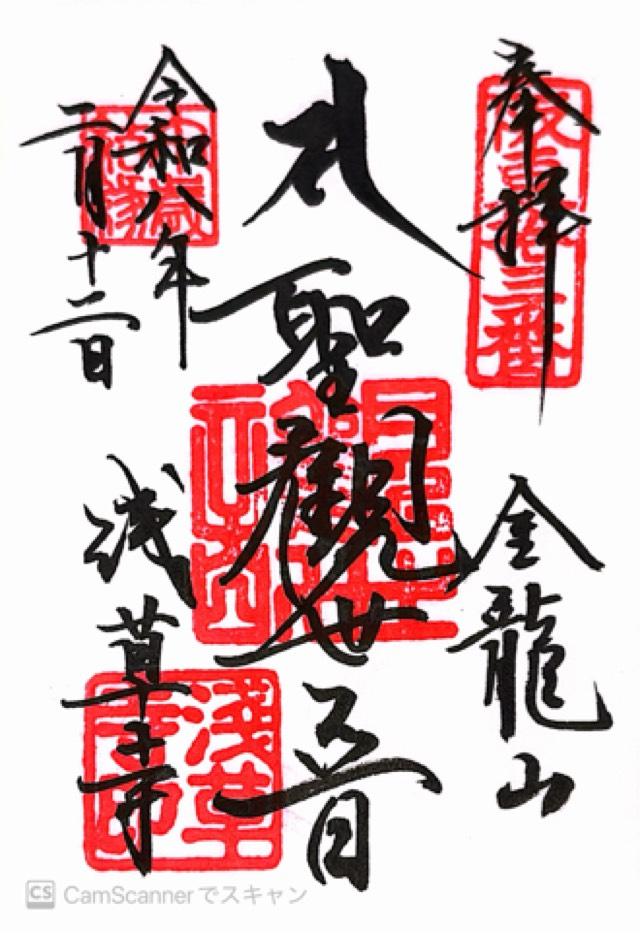 奉拝
坂東拾三番
金龍山
礼聖観世音
令和八年
二月十二日
浅草寺
淺草寺印
CamScannerでスキャン